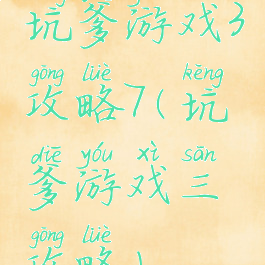 坑爹游戏3
gōng lüè kēng
攻略7(坑
diē yóu xì sān
爹游戏三
gōng lüè
攻略)